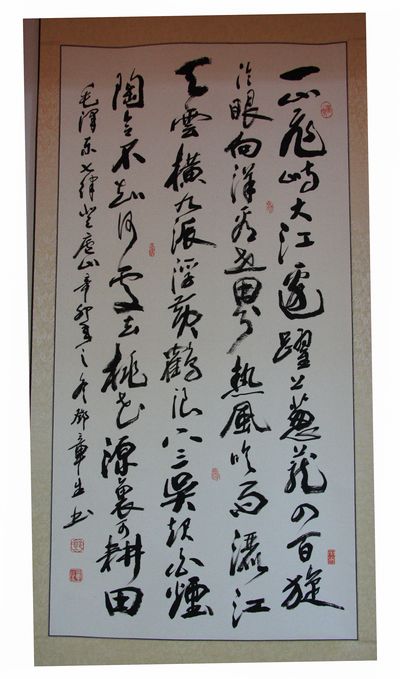 一山飛峙大江邊躍上蔥蘢四百旋
冷眼向洋看世界熱風吹雨灑江
天雲橫九派浮黃鶴浪下三吳起白煙
陶令不知何處去桃花源裏可耕田
毛澤東七律登廬山辛卯年之冬鄧章生書